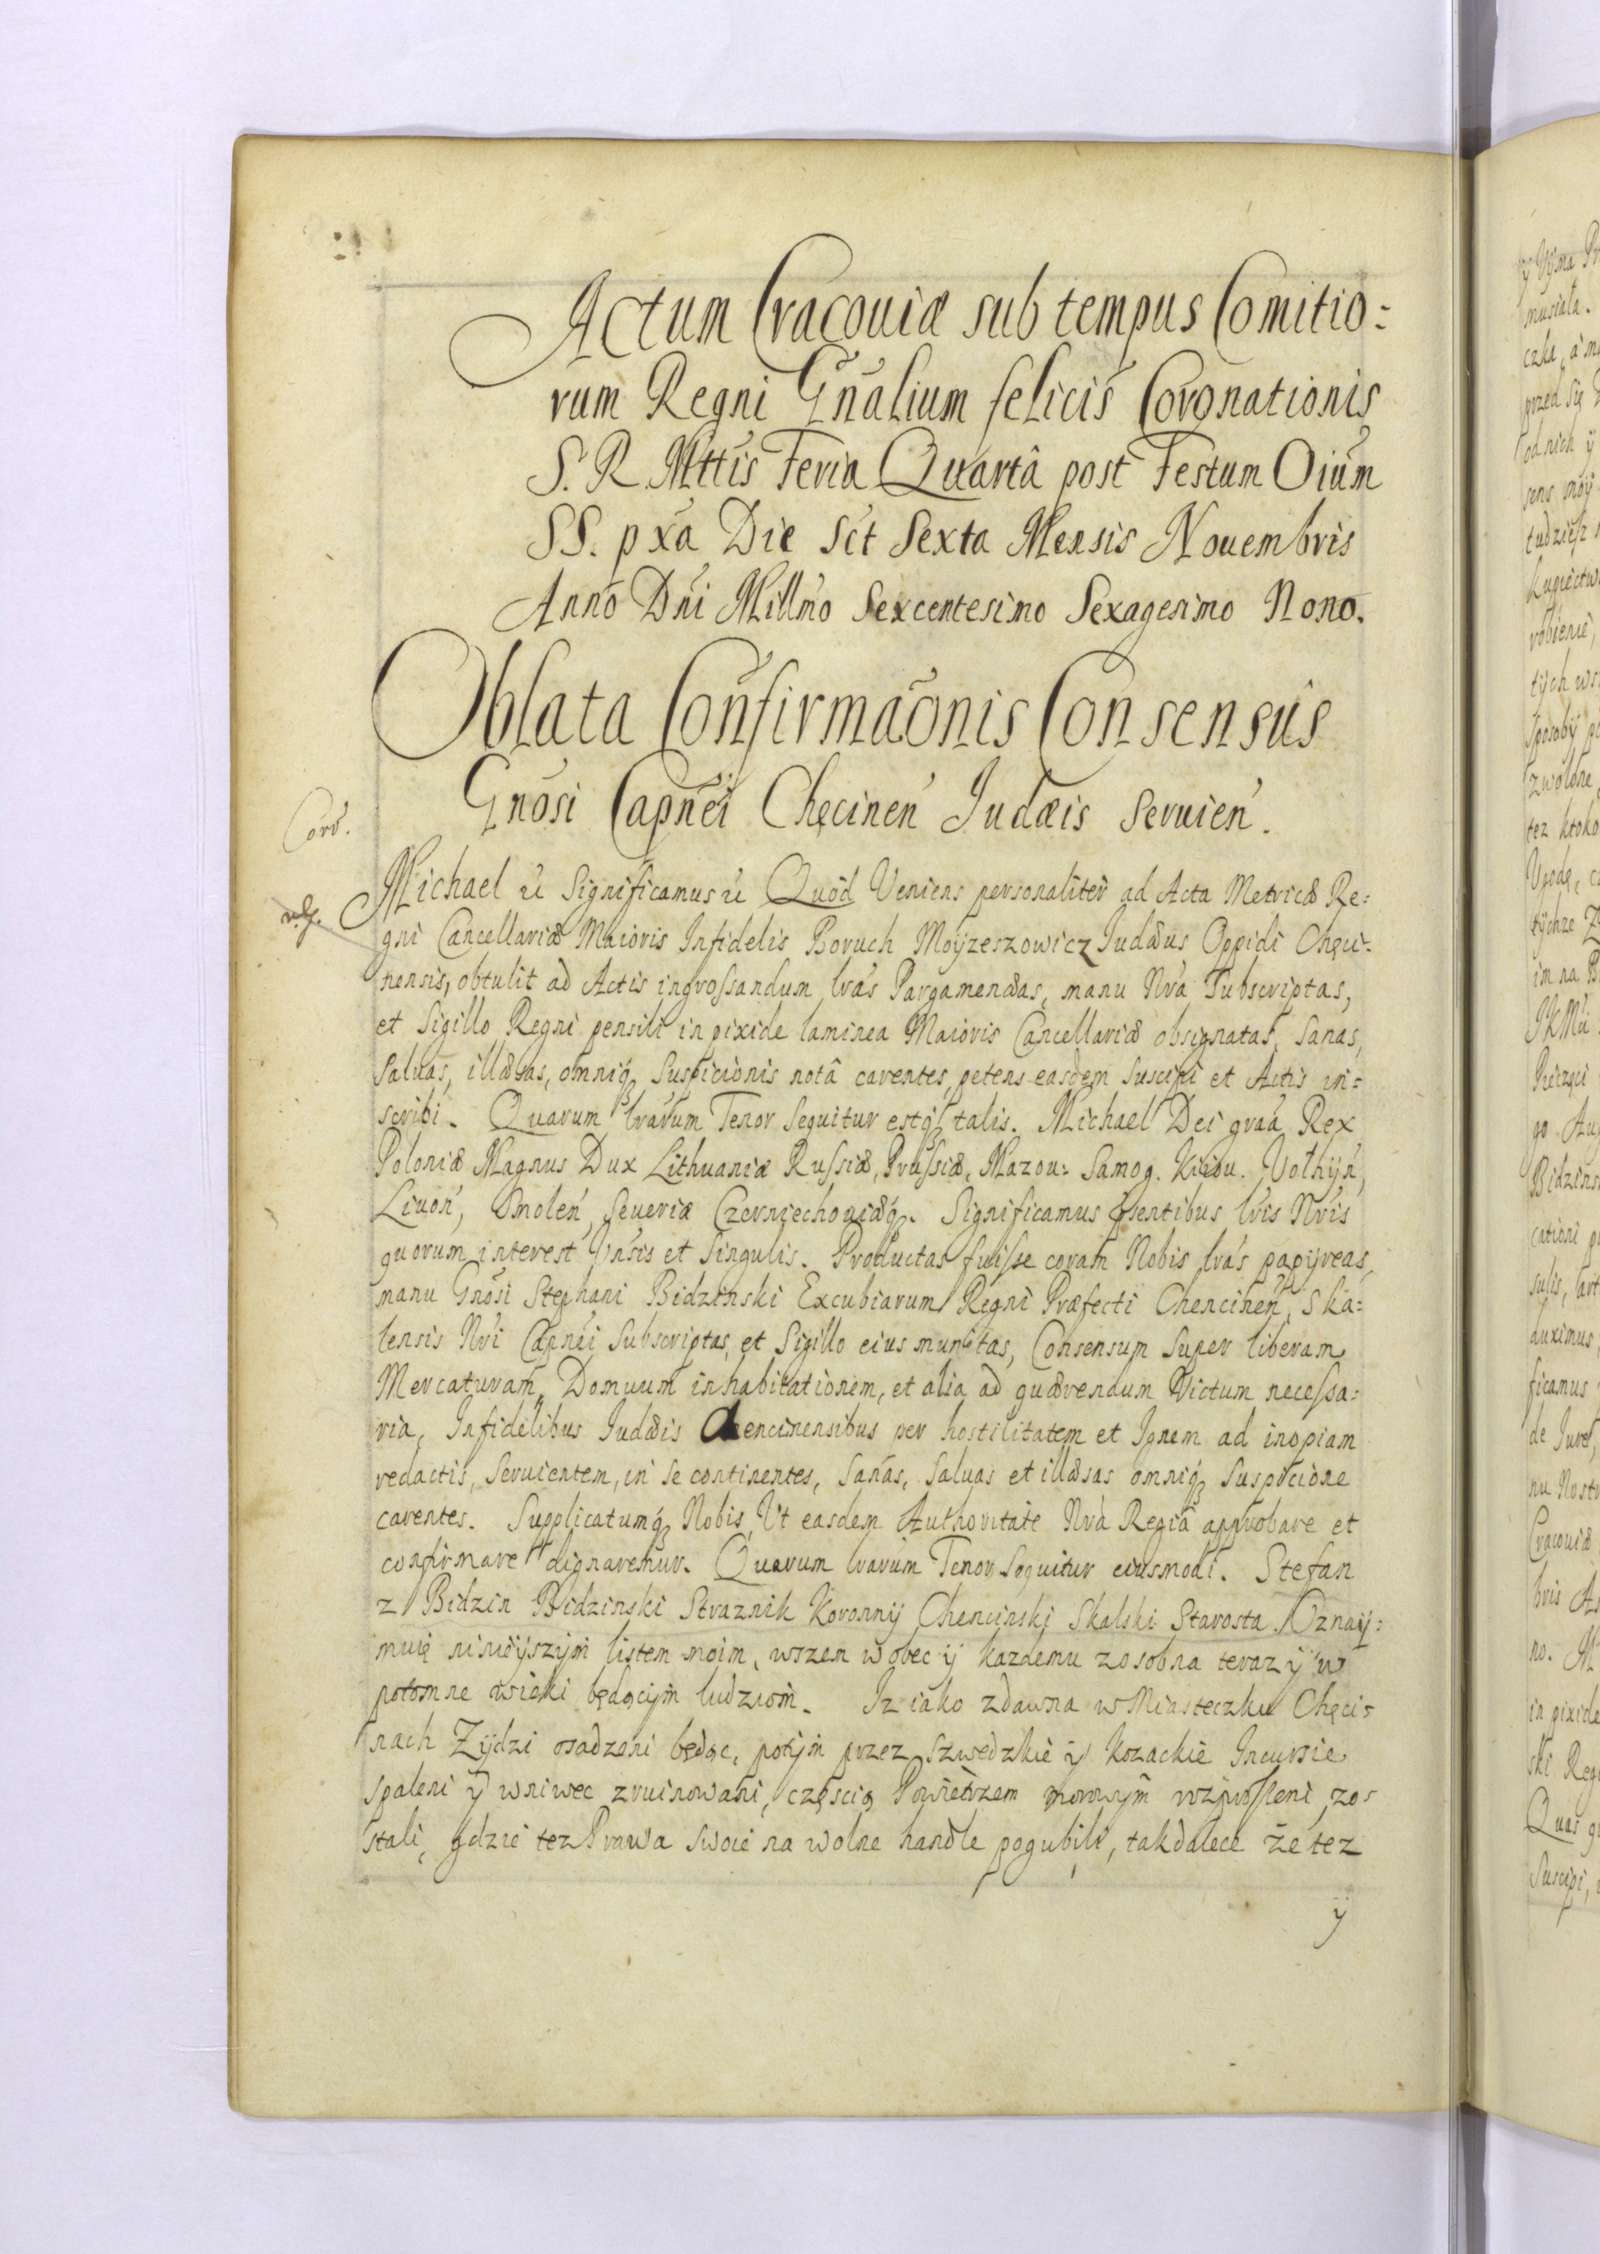 Actum Cracouiæ sub tempus Comitio:
rum Regni Gñalium felicis Coronationis
S. R. Mttis Feria Quartâ post Festum Oiūm
SS. pxa Die Sct Sexta Mensis Nouembris
Anno Dñi Millmo Sexcentesimo Sexagesimo Nono.
Oblata Confirmaõnis Consensûs
Gnosi Capnei Chęcinen Judæis Seruien.
Corr.
Michael &c Significamus &c Quod Veniens personaliter ad Acta Metricæ Re:
gni Cancellariæ Maioris Infidelis Boruch Moÿzeszowicz Judæus Oppidi Chęci:
nensis, obtulit ad Actis ingrossandum lras Pargameneas, manu Nra Subscriptas,
et Sigillo Regni pensili in pixide laminea Maioris Cancellariæ obsignatas, Sanas,
Saluas, illæsas, omniq; Suspicionis notâ carentes, petens easdem Suscipi et Actis in:
scribi. Quarum lrarum Tenor Sequitur estq; talis. Michael Dei graa Rex
Poloniæ Magnus Dux Lithuaniæ Russiæ, Prussiæ, Mazou: Samog. Kiiou. Volhÿn,
Liuon, Smolen, Seueriæ Czerniechouiæq;. Significamus pñsentibus lris Nris
quorum interest Vnsis et Singulis. Productas fuisse coram Nobis lras papÿreas,
manu Gnosi Stephani Bidzinski Excubiarum Regni Præfecti Chencinen, Ska:
lensis Nri Capnei Subscriptas, et Sigillo eius munitas, Consensum Super liberam
Mercaturam, Domuum inhabitationem, et alia ad quærendum Victum necessa:
ria, Infidelibus Judæis Chencinensibus per hostilitatem et Ignem ad inopiam
redactis, Seruientem, in se continentes, Sanas, Saluas et illæsas omniq; Suspicione
carentes. Supplicatumq; Nobis, Vt easdem Authoritate Nrà Regiâ approbare et
confirmare dignaremur. Quarum lrarum Tenor Sequitur eiusmodi. Stefan
z Bidzin Bidzinski Straznik Koronnÿ Chencinski Skalski Starosta. Oznaÿ:
muię ninieÿszÿm listem moim, wszem wobec ÿ kazdemu zosobna teraz ÿ w
potomne wieki będącÿm ludziom. Iz iako zdawna w Miasteczku Chęci:
nach Zÿdzi osadzeni będąc, potÿm przez Szwedzkie ÿ Kozackie Incursie
spaleni ÿ wniwec zruinowani, częscią Powietrzem morowÿm zo:
stali, gdzie tez Prawa swoie na wolne handle pogubili, takdalece że tez
ÿ